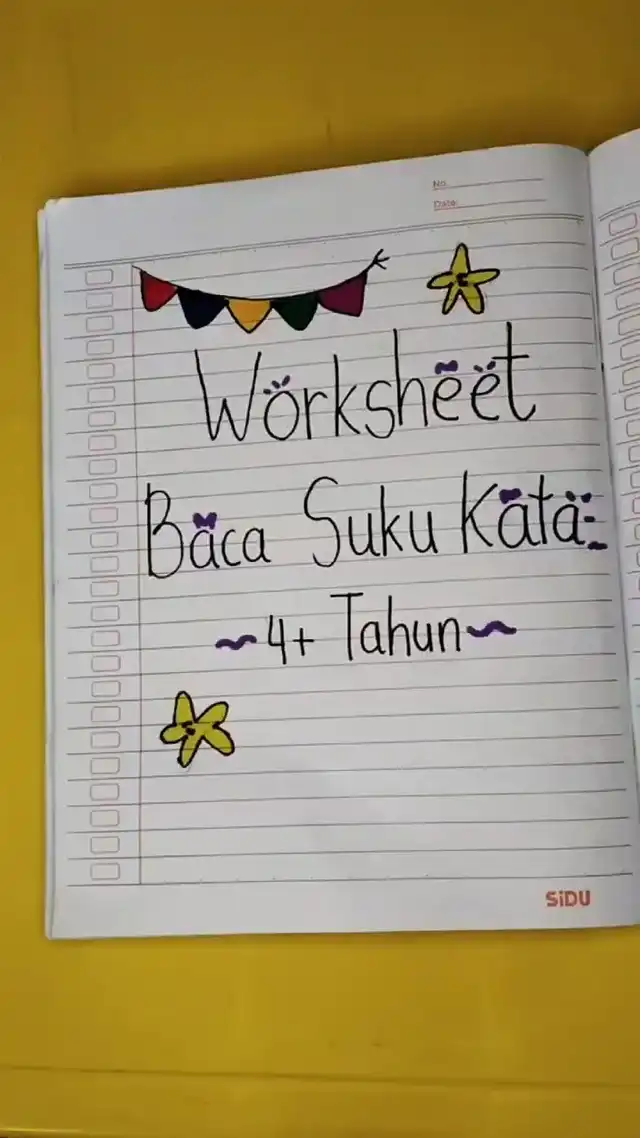 No.
Date:
Worksheet
Baca Suku Kata
~4+ Tahun~
SiDU